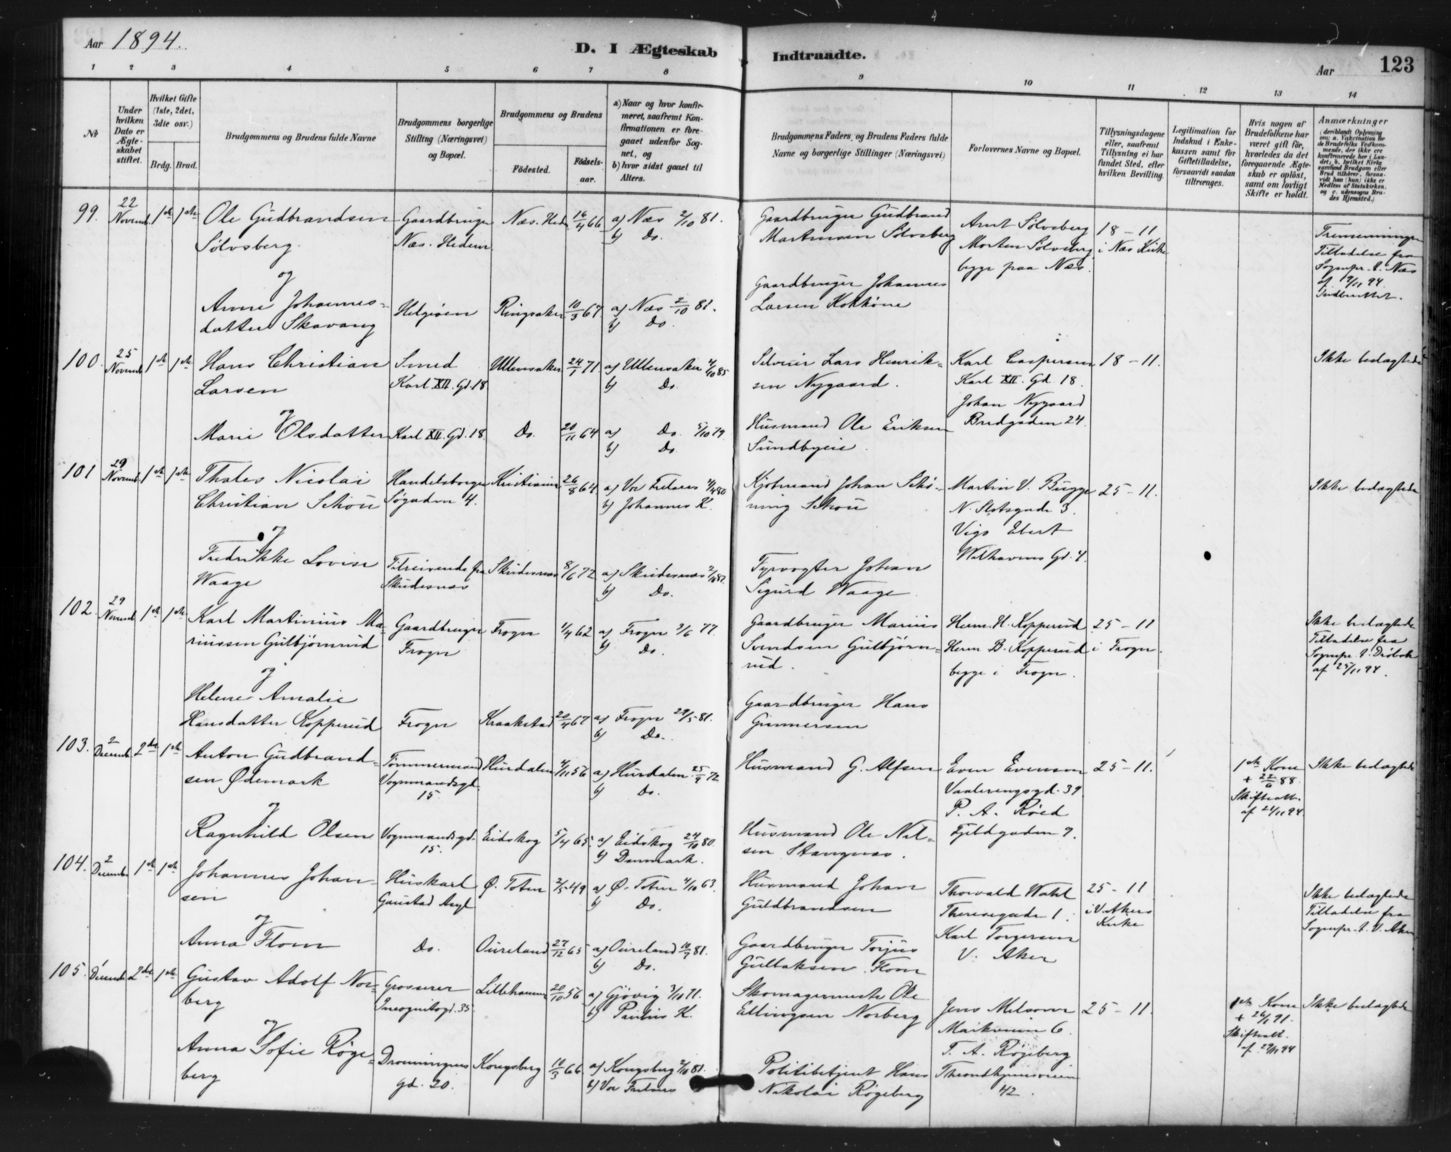 Aar 1894.
D. I Ægteskab Indtraadte.
Aar 123
1 2 3 4 5 6 7 8 9 10 11 12 13 14
No
Under hvilken Dato er Ægteskabet stiftet.
Hvilket Gifte (1ste, 2det, 3die osv.)
Brdg. Brud.
Brudgommens og Brudens fulde Navne
Brudgommens borgerlige Stilling (Næringsvei) og Bopæl.
Brudgommens og Brudens
Fødested.
Fødselsaar.
a) Naar og hvor konfirmeret, saafremt Konfirmationen er foregaaet udenfor Sognet, og
b) hvor sidst gaaet til Alters.
Brudgommens Faders og Brudens Faders fulde Navne og borgerlige Stillinger (Næringsvei)
Forlovernes Navne og Bopæl.
Tillysningsdagene eller, saafremt Tillysning ei har fundet Sted, efter hvilken Bevilling.
Legitimation for Indskud i Enkekassen samt for Giftetilladelse, forsaavidt saadan tiltrænges.
Hvis nogen af Brudefolkene har været gift før, hvorledes da det foregaaende Ægteskab er opløst, samt om lovligt Skifte er holdt.
Anmærkninger
99. 22 Novemb 1ste 1ste
Ole Gudbrandsen Sølvsberg
Gaardbruger Næs. Hedem
Næs. Hedm 16/4 66
a) Næs 2/10 81.
b) do.
Gaardbruger Gudbrand Martinsen Sølvsberg
Arnt Sølvsberg
Morten Sølvsberg
begge paa Næs.
18-11 i Næs Kirke
Tilladelse fra Sognepr. i Næs
og
Anne Johannesdatter Skavang
Helgøen
Ringsaker 10/3 67
a) Næs 2/10 81.
b) do.
Gaardbruger Johannes Larsen
100. 25 Novemb 1ste 1ste
Hans Christian Larsen
Smed Karl XII. Gd 18
Ullensaker 24/1 71
a) Ullensaker 4/10 85
b) do.
Selveier Lars Henriksen Nygaard.
Karl Caspersen
Karl XII. Gd. 18.
Johan Nygaard
Bredgaden 24.
18-11.
Ikke beslægtede
og
Marie Olsdatter
Karl XII. Gd. 18
Do. 20/11 64
a) do. 5/10 79.
b) do
Husmand Ole Eriksen Sundbyeie.
101 29 Novemb 1ste 1ste
Thales Nicolai Christian Schou
Handelsborger Søgaden 4.
Kristiania 26/8 64
a) Vor Frelsers 11/4 80
b) Johannes K.
Kjøbmand Johan Schøning Schou
Martin V. Bugge
N. Slotsgade 3
Vigo Ebert
Wilhavens Gd. 4.
25-11.
Ikke beslægtede
og
Fredrikke Lovise Waage
Tilreisende fra Skudesnæs
Skudesnæs 8/6 72
a) Skudesnæs
b) do.
Fyrvogter Johan Sigurd Waage.
102. 29 Novemb 1ste 1ste
Karl Martinius Mariussen Gulbjørnrud
Gaardbruger Frogn
Frogn 1/4 62
a) Frogn 3/6 77.
b) do.
Gaardbruger Marius Svendsen Gulbjørnrud.
Herm. H. Kopperud
Herm. B. Kopperud
begge i Frogn.
25-11 i Frogn.
Ikke beslægtede
Tilladelse fra Sognepr. i Drøbak af 25/11 94.
og
Helene Amalie Hansdatter Kopperud
Frogn
Kraakstad 20/4 67
a) Frogn 29/5 81.
b) do.
Gaardbruger Hans Gunnersen
103. 2 Decemb 2den 1ste
Anton Gudbrandsen Ødemark
Tømmermand Vognmandsgd. 15
Hurdalen 11/11 56
a) Hurdalen 25/8 72
b) do.
Husmand G. Alfsen
Even Evensen
Vaalerengsgd. 39
P. A. Røed
Fjeldgaden 7.
25-11.
1ste Kone + 22/6 88
Skifteatt. af 24/11 94.
Ikke beslægtede
og
Ragnhild Olsen
Vognmandsgd. 15.
Eidskog 5/4 65.
a) Eidskog 24/10 80
b) Danmark.
Husmand Ole Nilsen Stangnæs.
104. 2 Decemb 1ste 1ste
Johannes Johansen
Huskarl Gaustad Asyl
Ø. Toten 2/5 49
a) Ø. Toten 4/10 63.
b) do.
Husmand Johan Guldbrandsen
Thorvald Wahl
Theresegade 1.
Karl Torgersen
V. Aker
25-11 i V. Akers Kirke
Ikke beslægtede
Tilladelse fra Sognepr. i V. Aker
og
Anna Flom
do.
Aurland 27/12 65
a) Aurland 81.
b) do.
Gaardbruger Torjus Gulbaksen Flom
105. 1 Decemb 2den 1ste
Gustav Adolf Norberg
Grosserer Incognitogd. 35
Lillehammer 20/10 56
a) Gjøvig 1/10 71.
b) Paulus K.
Skomagermester Ole Ellingsen Norberg
Jens Melsom
Markveien 6.
T. A. Røgeberg
Throndhjemsveien 42.
25-11.
1ste Kone +
Skifteatt.
Ikke beslægtede
og
Anna Sofie Røgeberg
Dronningens gd. 20.
Kongsberg 10/3 66
a) Kongsberg 2/10 81.
b) Vor Frelsers
Politibetjent Hans Nikolai Røgeberg